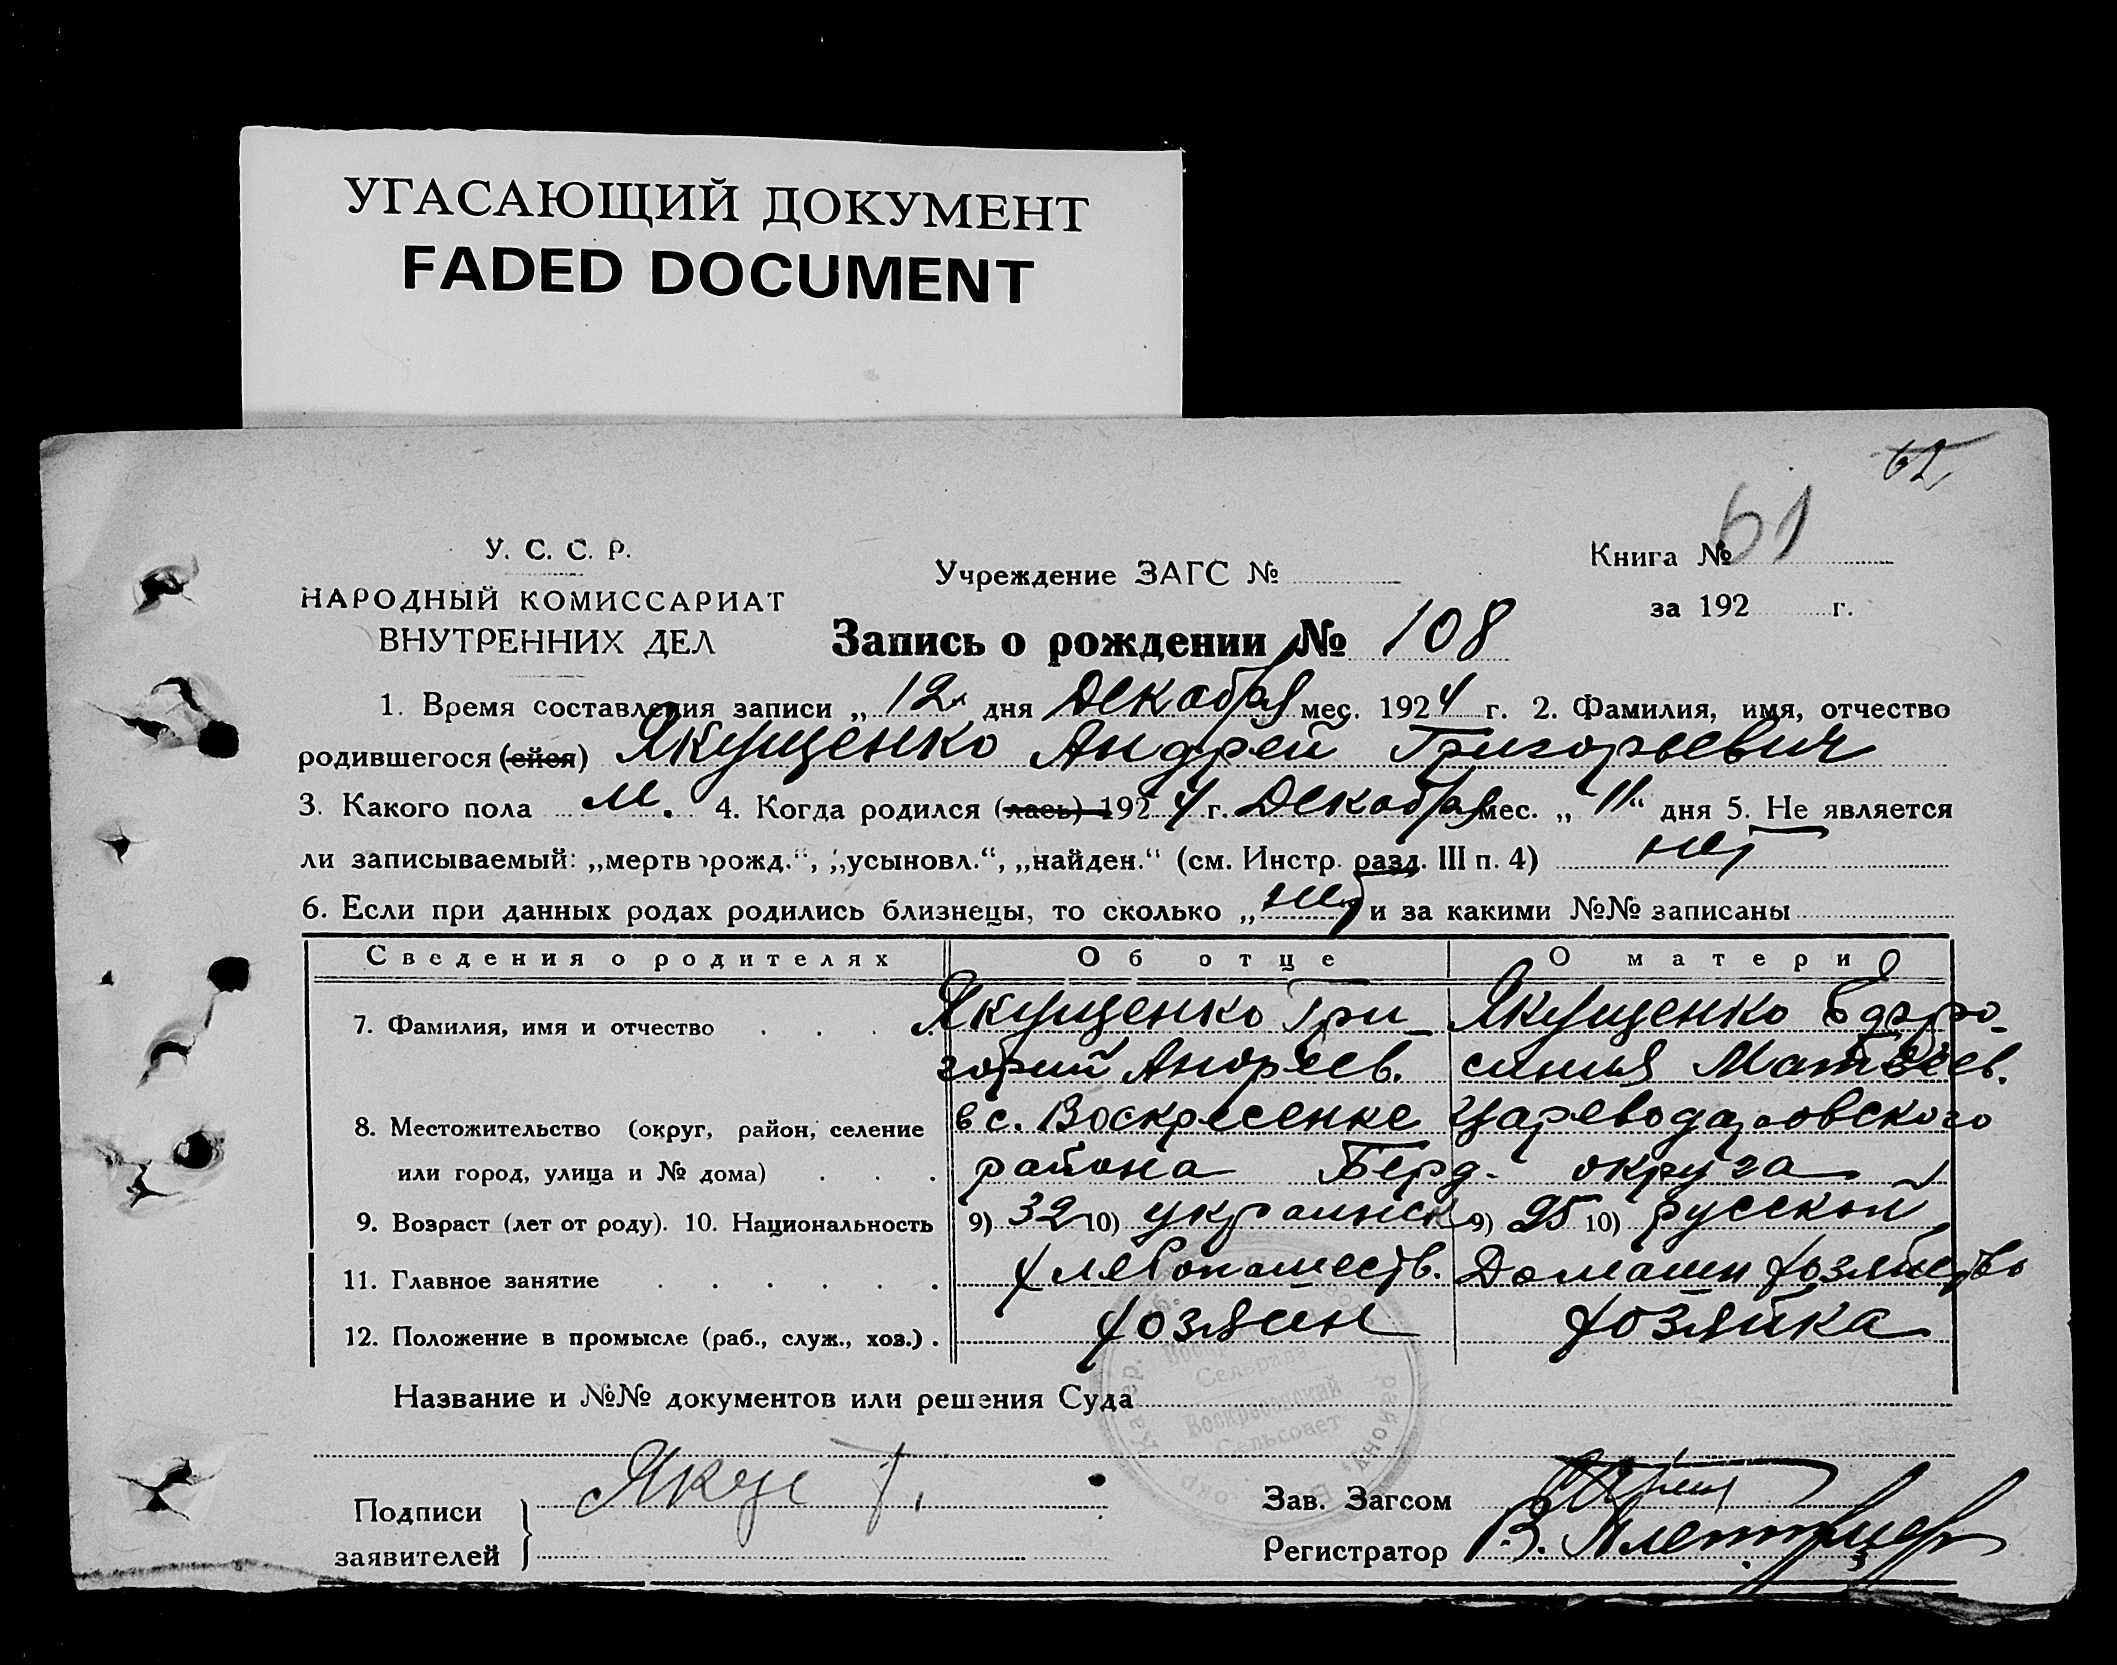 УГАСАЮЩИЙ ДОКУМЕНТ
FADED DOCUMENT
62
61
У. С. С. Р.
НАРОДНЫЙ КОМИССАРИАТ
ВНУТРЕННИХ ДЕЛ
Учреждение ЗАГС №
Книга №
за 192 г.
Запись о рождении № 108
1. Время составления записи „12" дня Декабря мес. 1924 г. 2. Фамилия, имя, отчество
родившегося (ейся) Якущенко Андрей Григорьевич
3. Какого пола м. 4. Когда родился (лась) 1924 г. Декабря мес. „11" дня 5. Не является
ли записываемый: „мертворожд.", „усыновл.", „найден." (см. Инстр. разд. III п. 4) нет
6. Если при данных родах родились близнецы, то сколько „нет и за какими №№ записаны
Сведения о родителях Об отце О матери
7. Фамилия, имя и отчество . . . Якущенко Гри- Якущенко Евфро-
горий Андреев. синия Матвеев.
8. Местожительство (округ, район, селение в с. Воскресенке Цареводаровского
или город, улица и № дома) . . . района Берд. округа
9. Возраст (лет от роду). 10. Национальность 9) 32 10) украинск 9) 25 10) русской
11. Главное занятие . . . . . . хлебопашеств. Домашн хозяйство
12. Положение в промысле (раб., служ., хоз.) . хозяин хозяйка
Название и №№ документов или решения Суда
Воскресенский
Сельсовет
Подписи
заявителей
Якущ Г.
Зав. Загсом
Регистратор В.